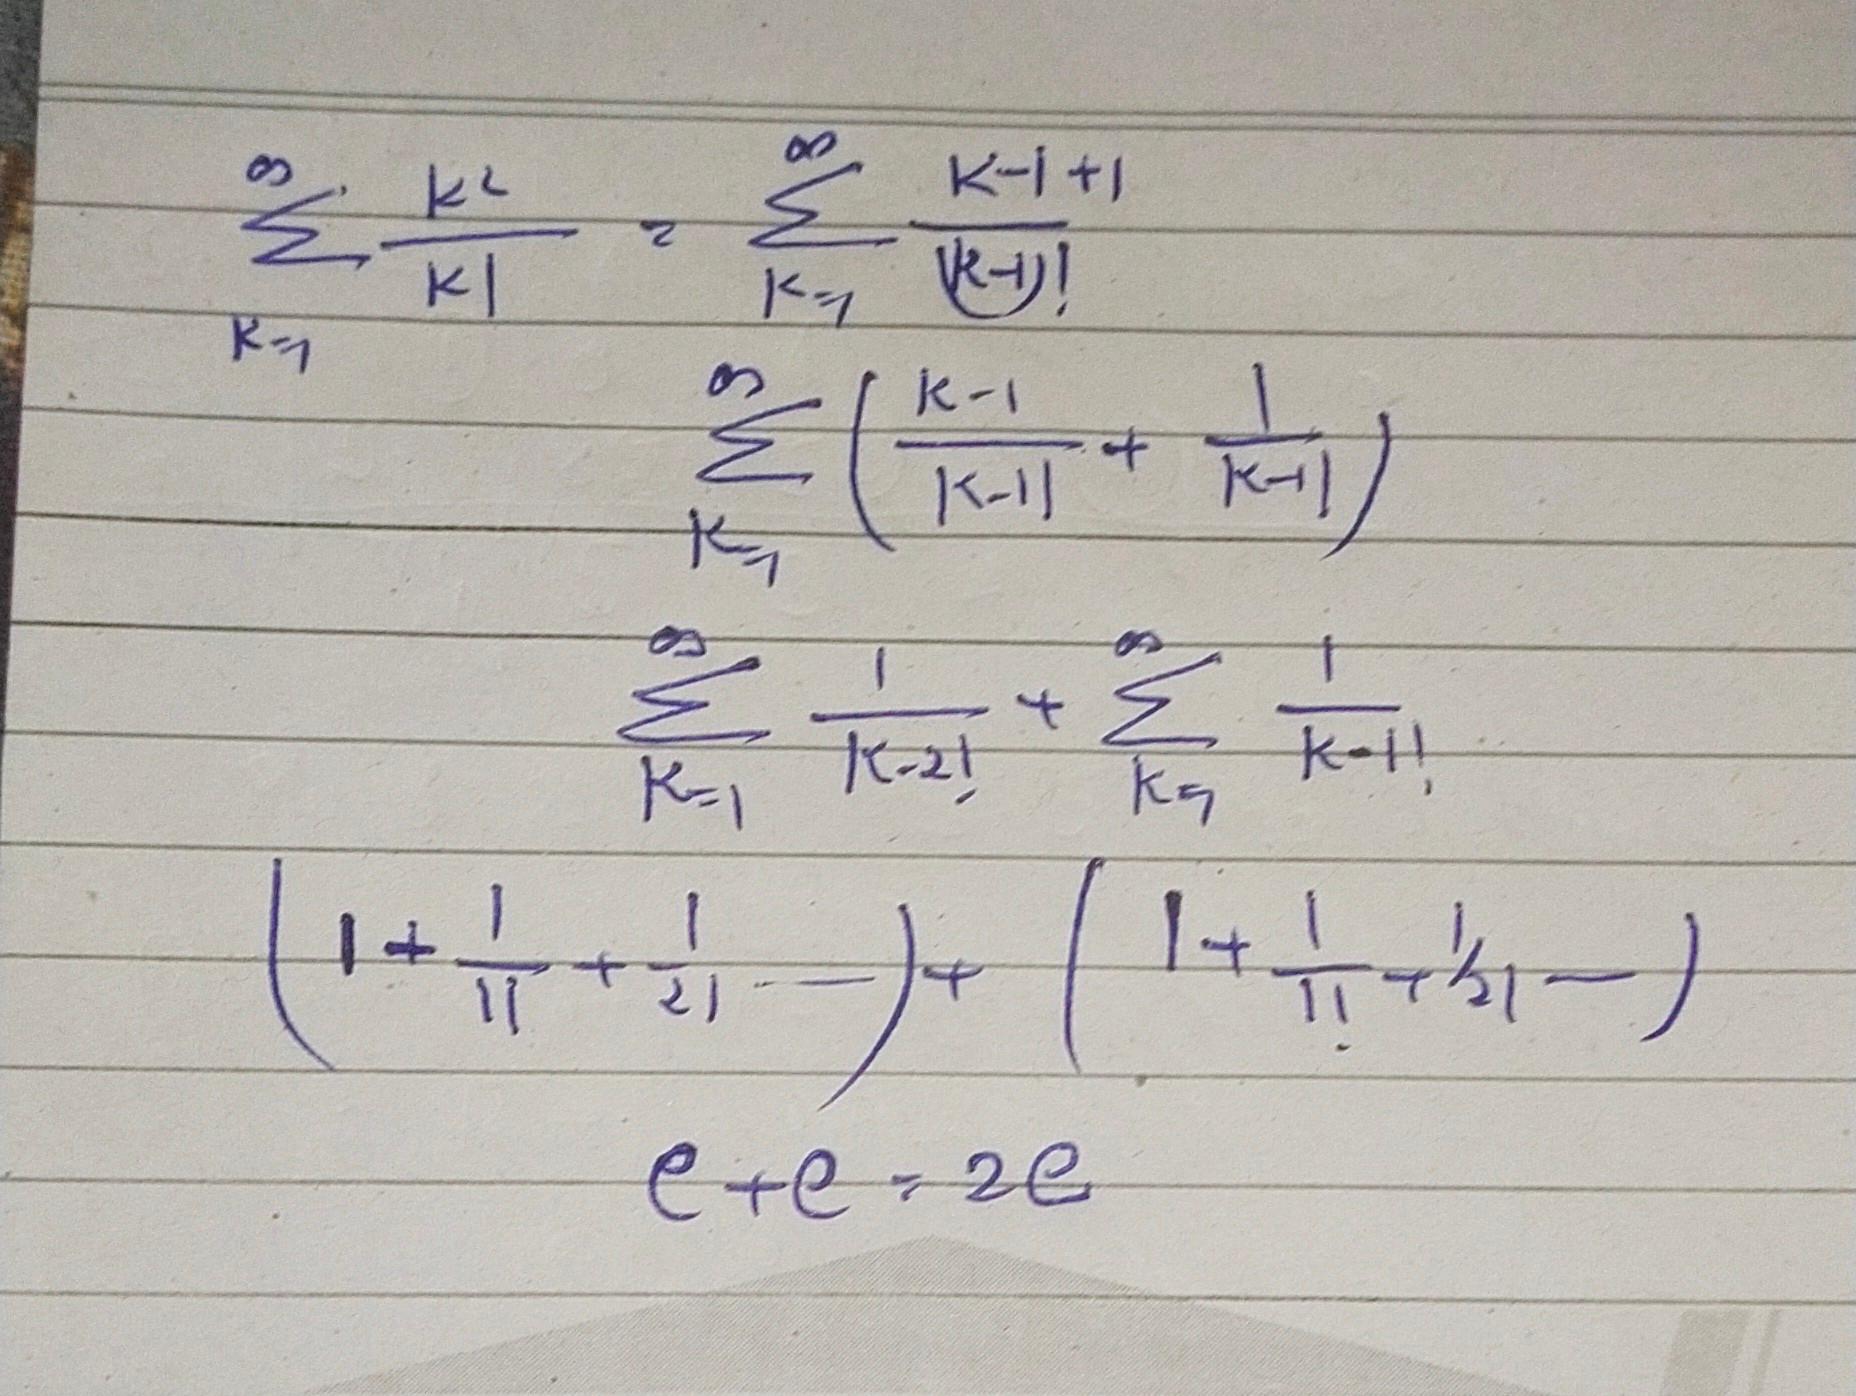 ∞∑K=1 K²/K! = ∞∑K=1 K-1+1/(K-1)!
∞∑K=1 (K-1/K-1! + 1/K-1!)
∞∑K=1 1/K-2! + ∞∑K=1 1/K-1!
(1 + 1/1! + 1/2! - —) + (1 + 1/1! + 1/2! —)
e + e = 2e